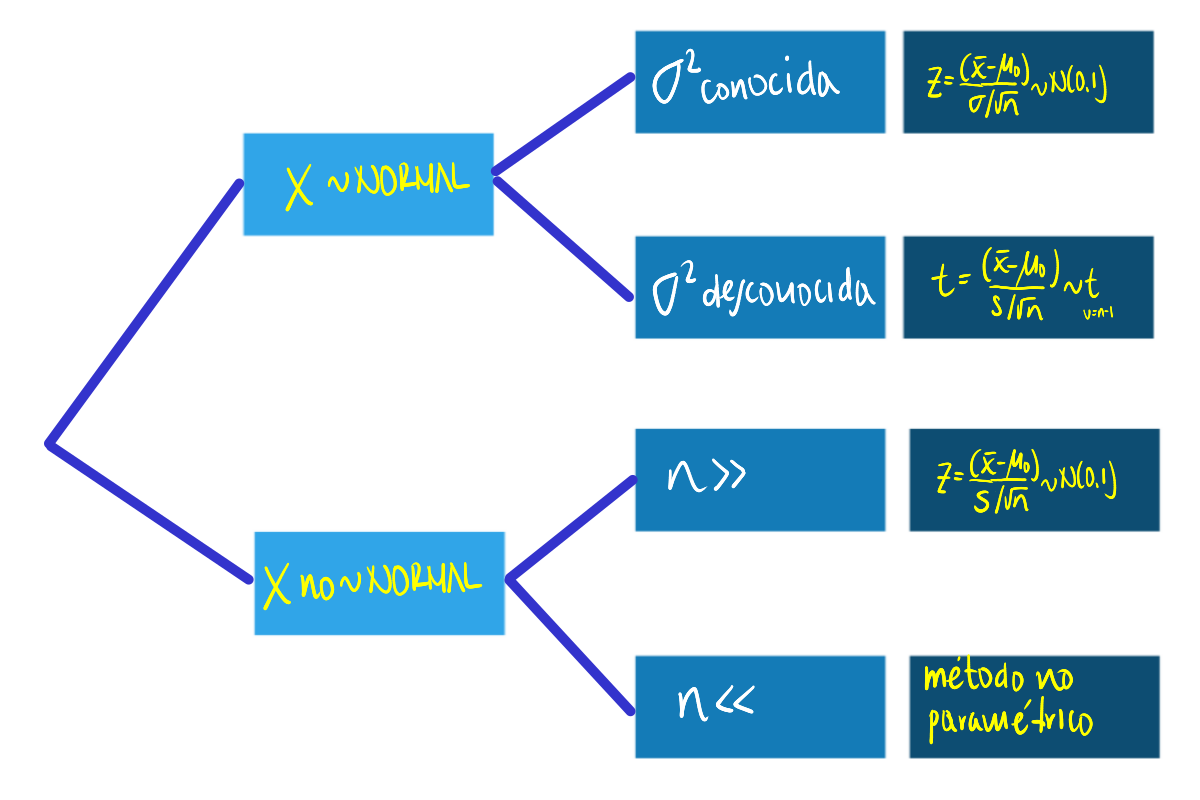 X ~ NORMAL
σ² conocida
Z = (x̄-μ₀) / σ/√n ~ N(0.1)
σ² desconocida
t = (x̄-μ₀) / S/√n ~ t ν=n-1
X no ~ NORMAL
n >>
Z = (x̄-μ₀) / S/√n ~ N(0.1)
n <<
método no
paramétrico